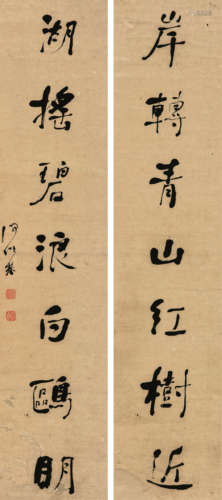 岸轉青山紅樹近
湖搖碧浪白鷗明